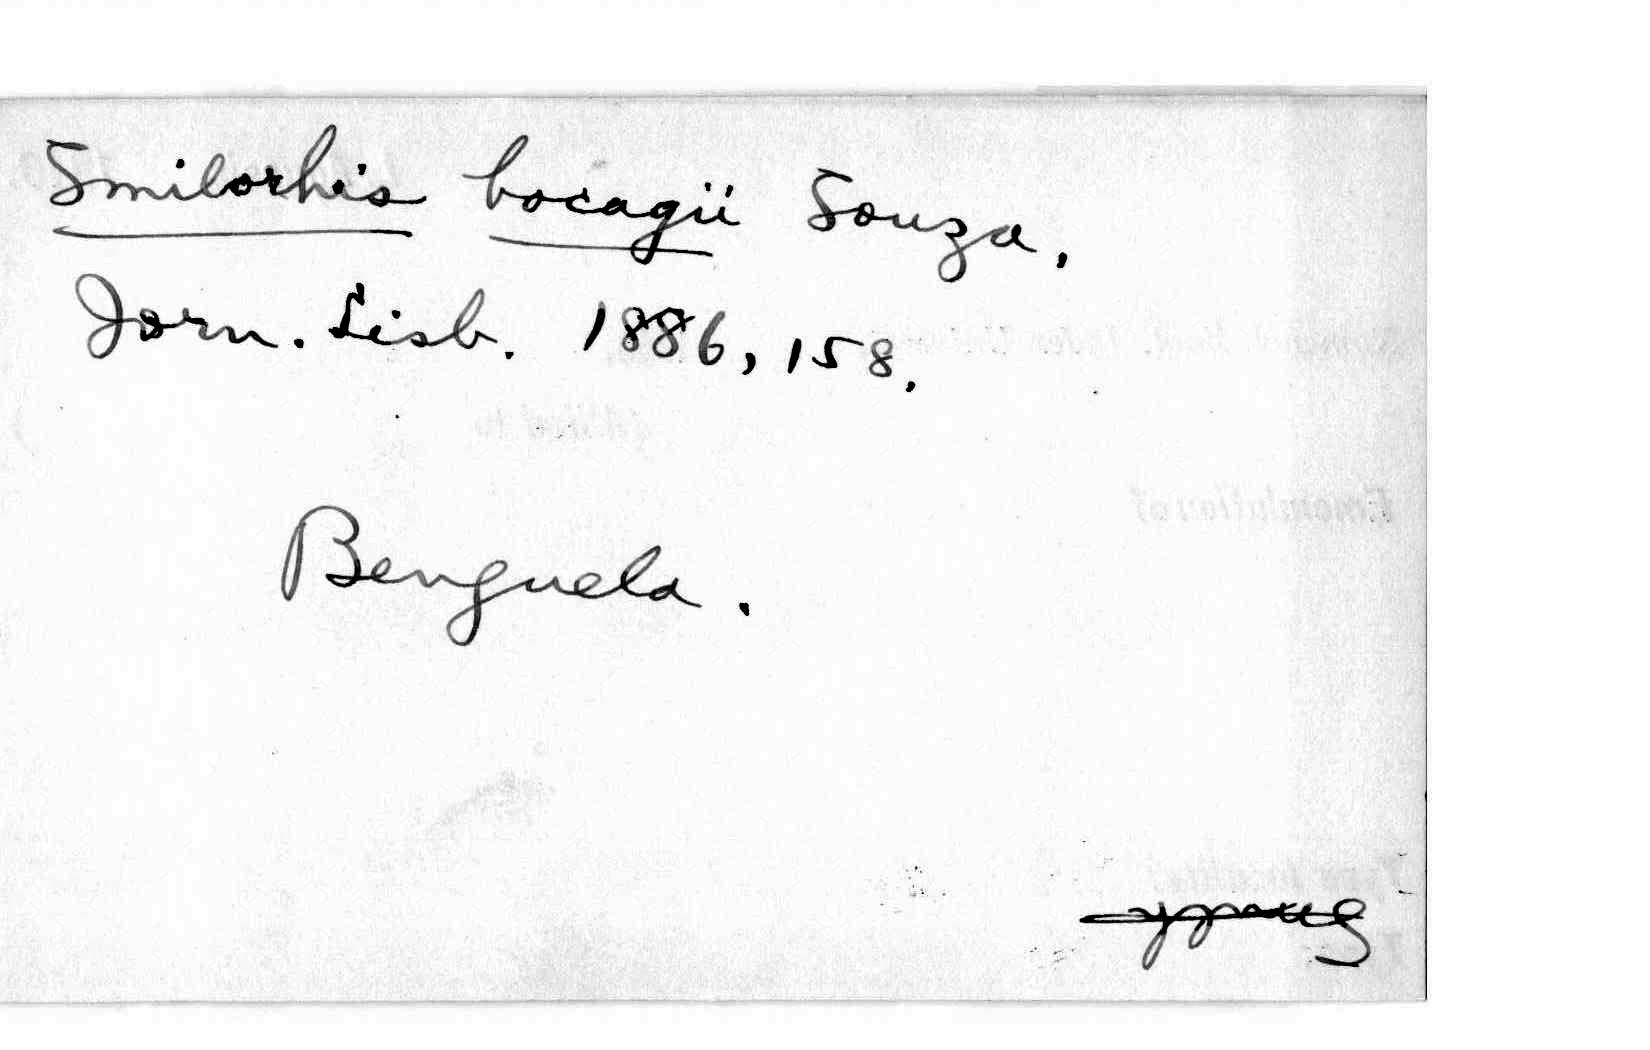 Smilorhis bocagii Souza.
Jorn. Lisb. 1886, 158.
Benguela.